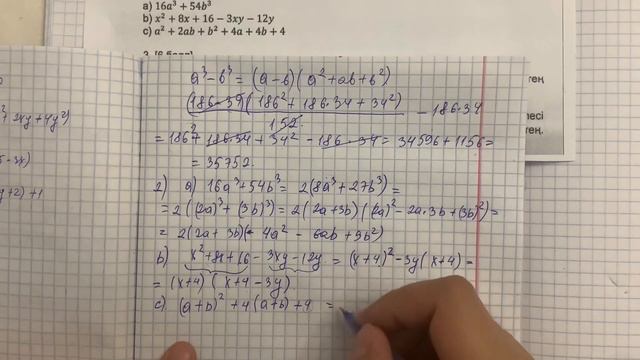 a) 16a³ + 54b³
b) x² + 8x + 16 − 3xy − 12y
c) a² + 2ab + b² + 4a + 4b + 4
a³ − b³ = (a − b)(a² + ab + b²)
(186 − 34)(186² + 186·34 + 34²) − 186·34
152
= 186² + 186·34 + 34² − 186·34 = 34596 + 1156 =
= 35752
2) a) 16a³ + 54b³ = 2(8a³ + 27b³) =
= 2((2a)³ + (3b)³) = 2(2a + 3b)((2a)² − 2a·3b + (3b)²) =
= 2(2a + 3b)(4a² − 6ab + 9b²)
b) x² + 8x + 16 − 3xy − 12y = (x + 4)² − 3y(x + 4) =
= (x + 4)(x + 4 − 3y)
c) (a + b)² + 4(a + b) + 4 =
3xy + 4y²)
− 3x)
y + 2) + 1